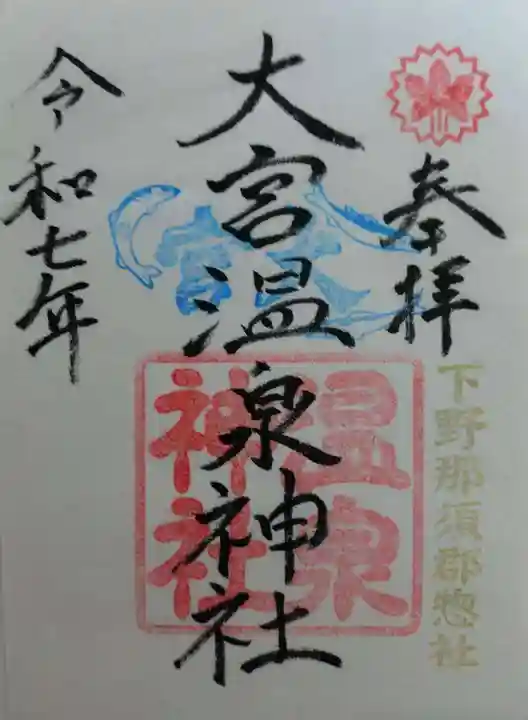 奉拝
下野那須郡惣社
大宮温泉神社
大宮
温泉
神社
令和七年